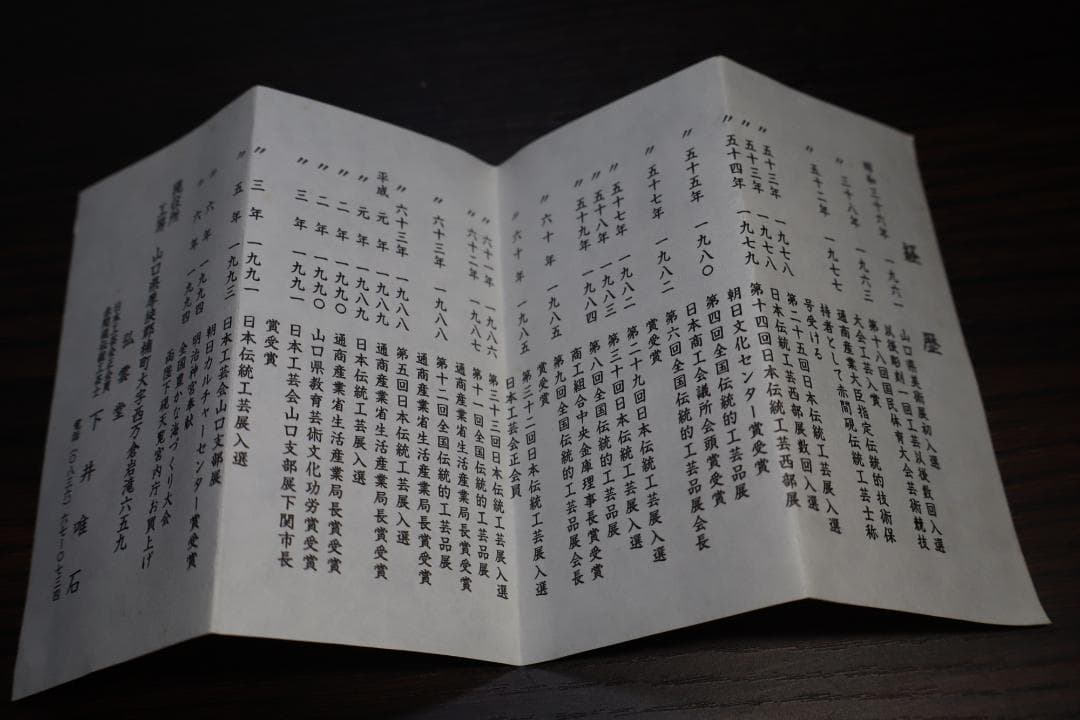 経歴
昭和三十六年 一九六一 山口県美術展初入選
以後彫刻一回工芸以後数回入選
〃三十八年 一九六三 第十八回国民体育大会芸術競技
大会工芸入賞
〃五十二年 一九七七 通商産業大臣指定伝統的技術保
持者として赤間硯伝統工芸士称
号受ける
〃五十三年 一九七八 第二十五回日本伝統工芸展入選
〃五十三年 一九七八 日本伝統工芸西部展数回入選
〃五十四年 一九七九 第十四回日本伝統工芸西部展
朝日文化センター賞受賞
〃五十五年 一九八〇 第四回全国伝統的工芸品展
日本商工会議所会頭賞受賞
〃五十七年 一九八二 第六回全国伝統的工芸品展会長
賞受賞
〃五十七年 一九八二 第二十九回日本伝統工芸展入選
〃五十八年 一九八三 第三十回日本伝統工芸展入選
〃五十九年 一九八四 第八回全国伝統的工芸品展
商工組合中央金庫理事長賞受賞
〃六十年 一九八五 第九回全国伝統的工芸品展会長
賞受賞
〃六十年 一九八五 第三十二回日本伝統工芸展入選
日本工芸会正会員
〃六十一年 一九八六 第三十三回日本伝統工芸展入選
〃六十二年 一九八七 第十一回全国伝統的工芸品展
通商産業省生活産業局長賞受賞
〃六十三年 一九八八 第十二回全国伝統的工芸品展
通商産業省生活産業局長賞受賞
〃六十三年 一九八八 第五回日本伝統工芸展入選
平成元年 一九八九 通商産業省生活産業局長賞受賞
〃元年 一九八九 日本伝統工芸展入選
〃二年 一九九〇 通商産業省生活産業局長賞受賞
〃二年 一九九〇 山口県教育芸術文化功労賞受賞
〃三年 一九九一 日本工芸会山口支部展下関市長
賞受賞
〃三年 一九九一 日本伝統工芸展入選
〃五年 一九九三 日本工芸会山口支部展
朝日カルチャーセンター賞受賞
〃六年 一九九四 明治神宮奉献
〃六年 一九九四 全国豊かな海づくり大会
両陛下硯天覧宮内庁お買上げ
山口県厚狭郡楠町大字西万倉岩滝六五九
弘雲堂
日本工芸会正会員
赤間硯伝統工芸士
下井唯石